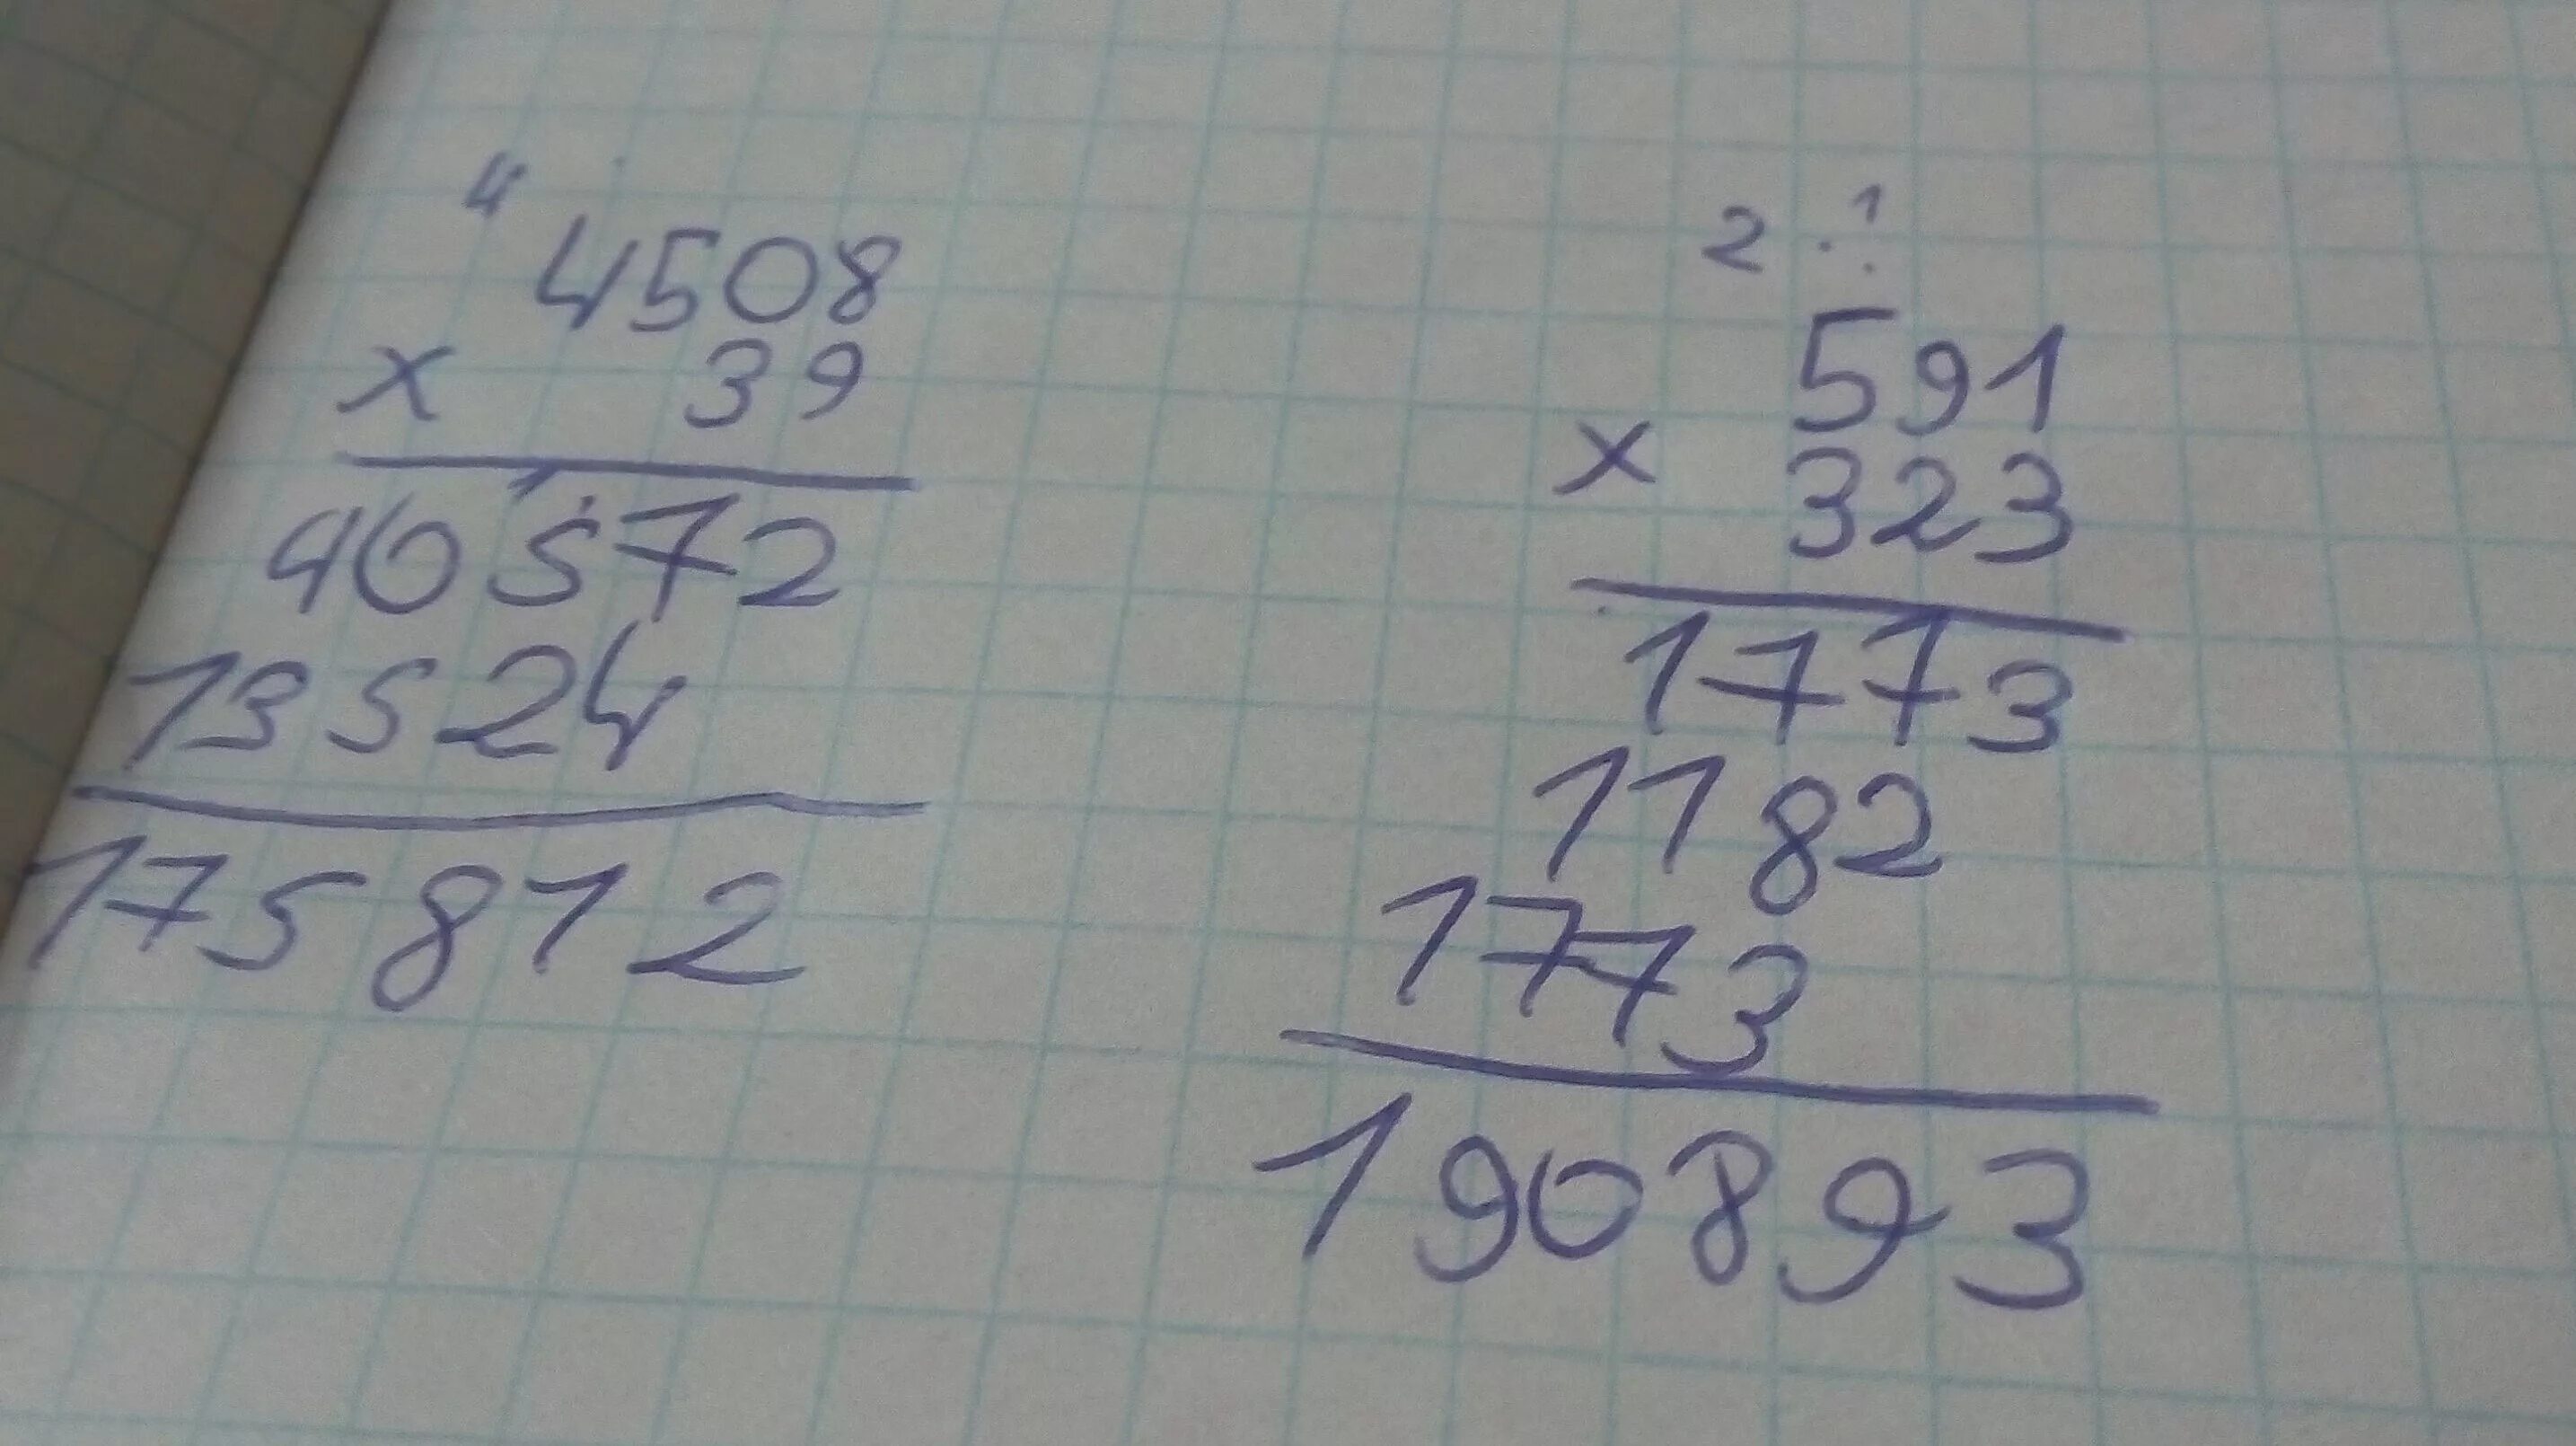 4
4508
x 39
40572
13524
175812
2 1
591
x 323
1773
1182
1773
190893